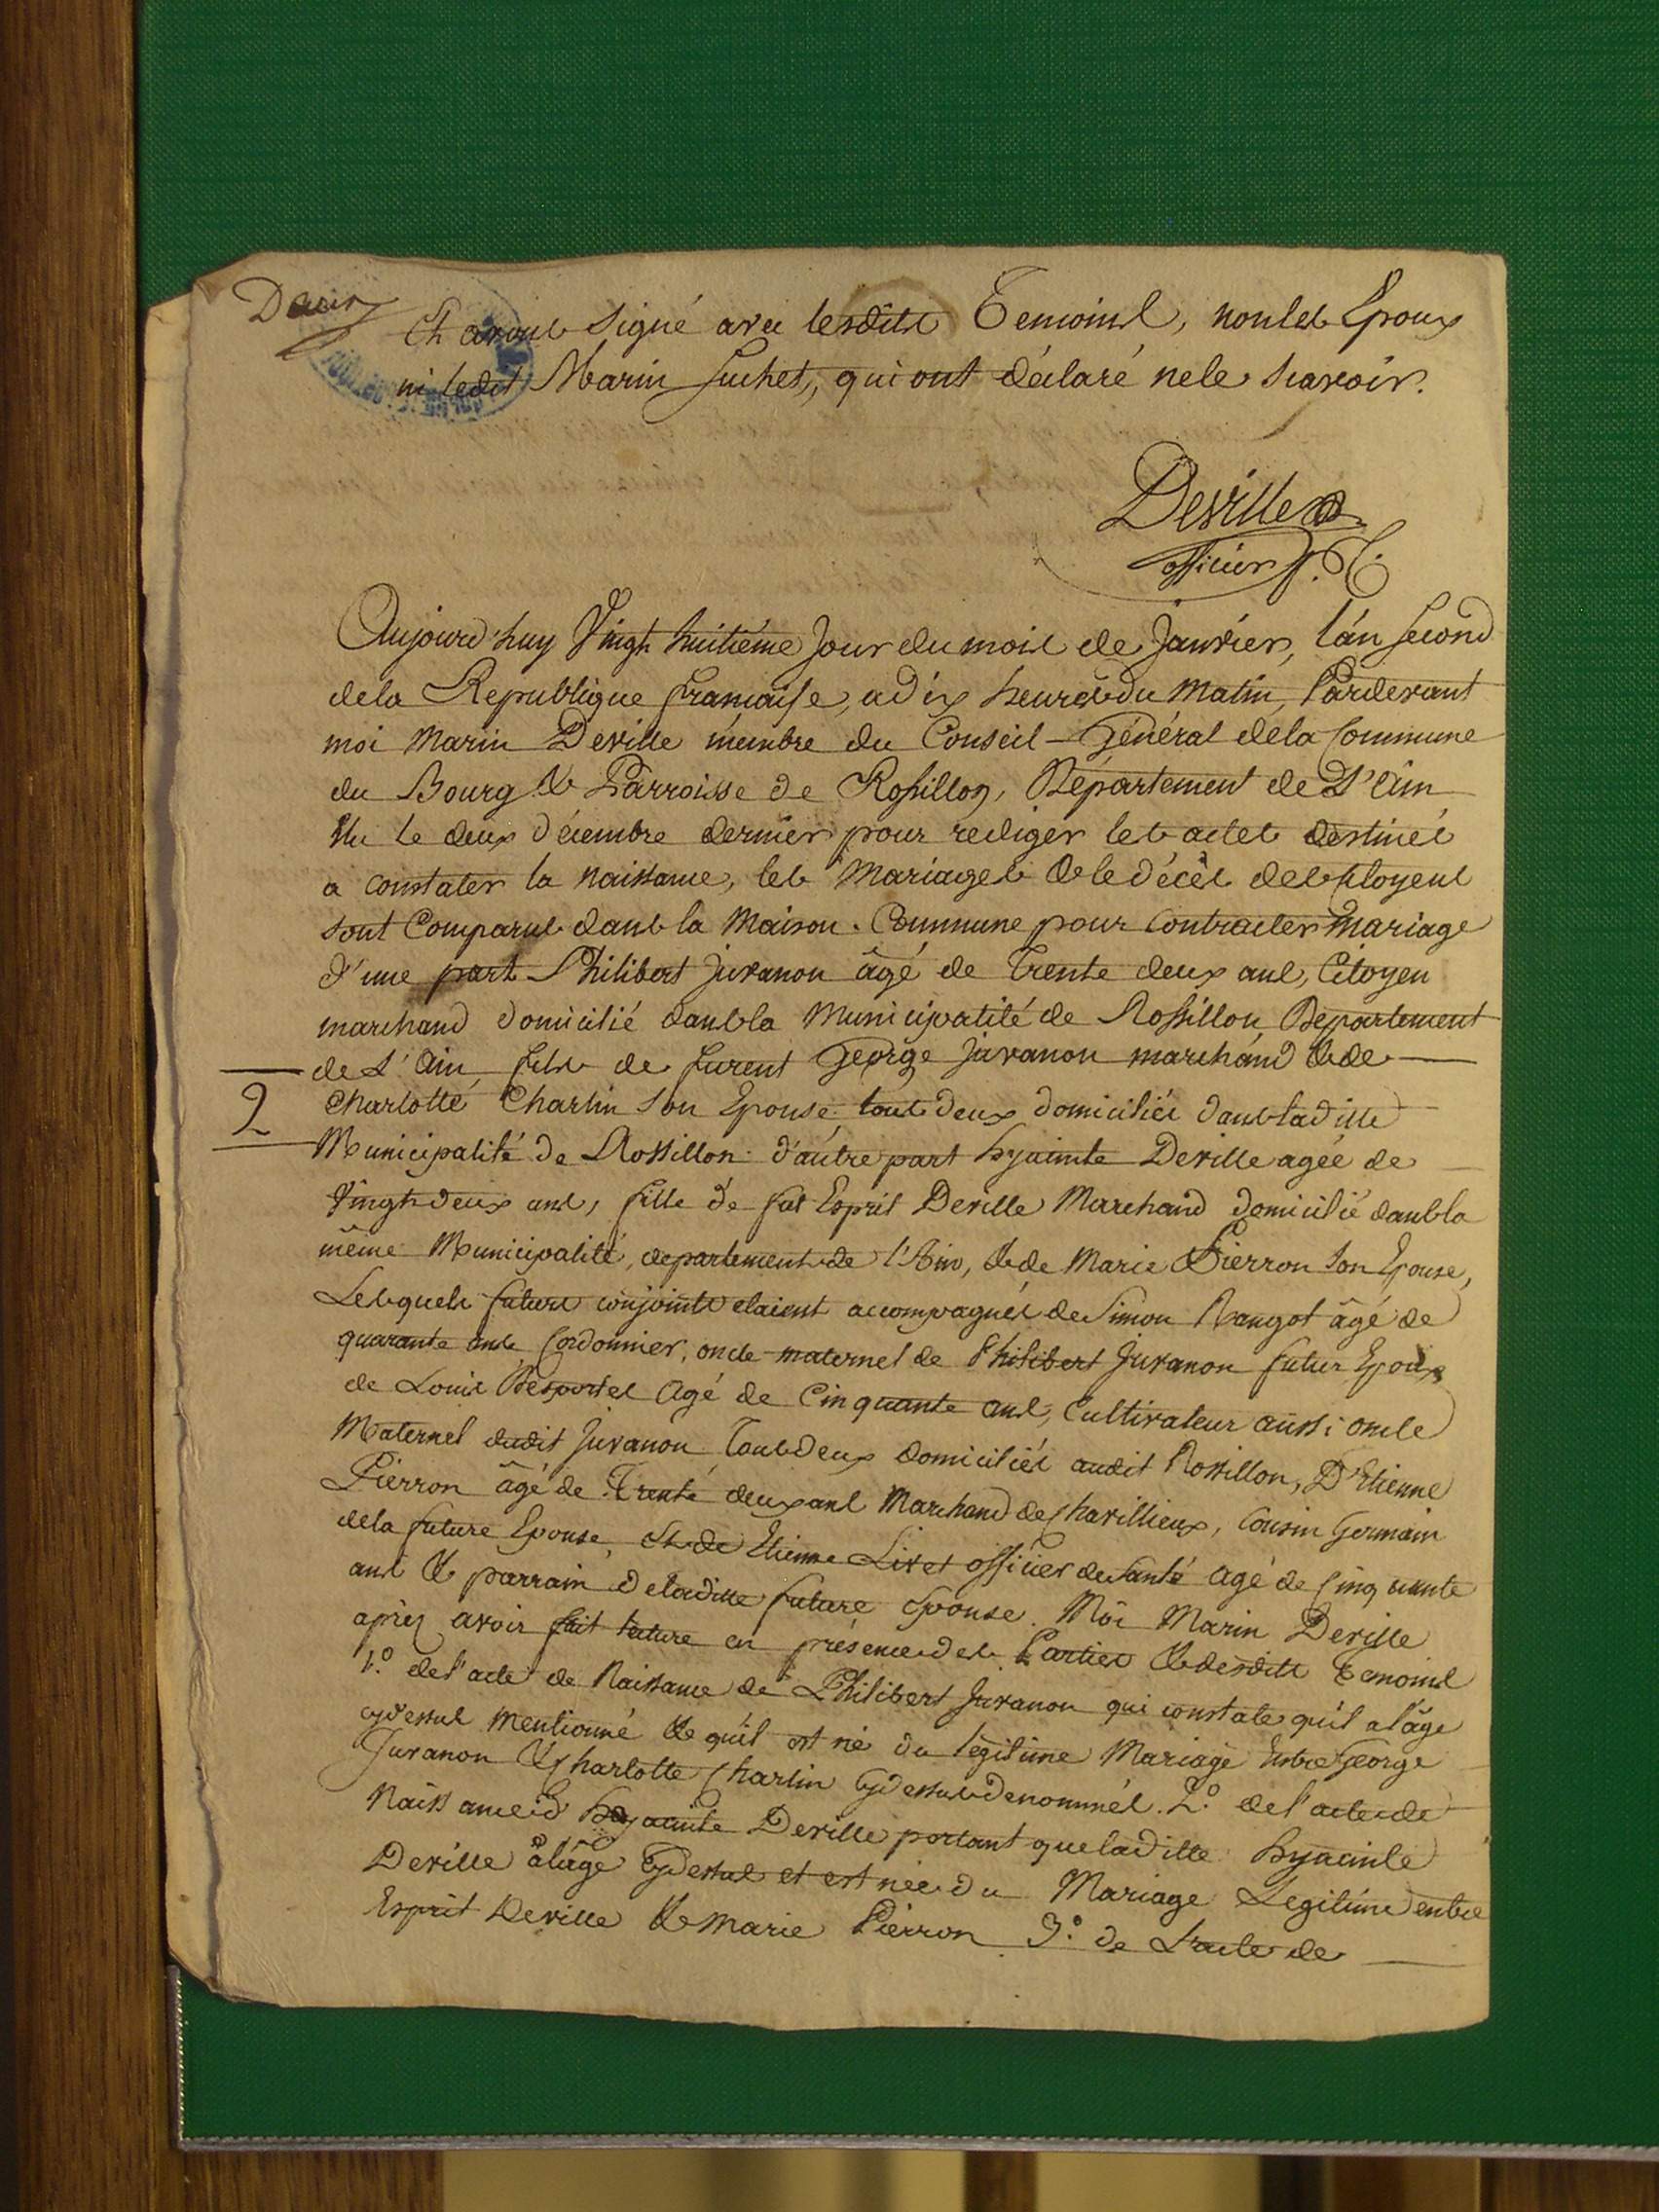 Et avons signé avec lesdits Temoins, non les Epoux
ni ledit Marin Suchet, qui ont déclaré ne le scavoir.
Deville
officier P.
Aujourd'huy Vingt huitiéme Jour du mois de Janvier, l'an second
dela Republique francaise, a dix heures du Matin, Pardevant
moi Marin Deville membre du Conseil-Général dela Commune
du Bourg & Parroisse de Rossillon, Département de L'ain
élu le deux décembre dernier pour rediger les actes destinés
a constater la naissance, les Mariages & le décès des Citoyens
sont Comparus dans la Maison-Commune pour contracter Mariage
d'une part Philibert Juvanon âgé de Trente deux ans, Citoyen
marchand domicilié dans la Municipalité de Rossillon Département
de L'Ain fils de furent George Juvanon marchand & de
2
Charlotte Charlin son Epouse, tous deux domiciliés dans laditte
Municipalité de Rossillon. d'autre part hyacinte Deville agée de
Vingt deux ans, fille de fut Esprit Deville Marchand domicilié dans la
même Municipalité, departement de l'Ain, & de Marie Pierron son Epouse,
Lesquels futurs conjoints etaient accompagnés de Simon Rangot âgé de
quarante ans Cordonnier, oncle maternel de Philibert Juvanon futur Epoux
de Louis Desportes Agé de Cinquante ans, Cultivateur aussi oncle
Maternel dudit Juvanon, Tous deux domiciliés audit Rossillon, D'Etienne
Pierron âgé de Trente deux ans Marchand de Chavillieux, Cousin Germain
dela future Epouse, Et de Etienne Livet officier de Santé Agé de Cinquante
ans & parrain de laditte future Epouse. Moi Marin Deville
après avoir fait lecture en présence des Parties & desdits Temoins
1.° del'acte de Naissance de Philibert Juvanon qui constate qu'il a l'âge
cy dessus mentionné & qu'il est né du légitime Mariage Entre George
Juvanon & Charlotte Charlin Cy dessus denommés. 2.° del'acte de
Naissance d'hyacinte Deville portant que laditte hyacinte
Deville a l'âge Cy dessus et est née du Mariage Legitime entre
Esprit Deville & Marie Pierron 3.° de L'acte de